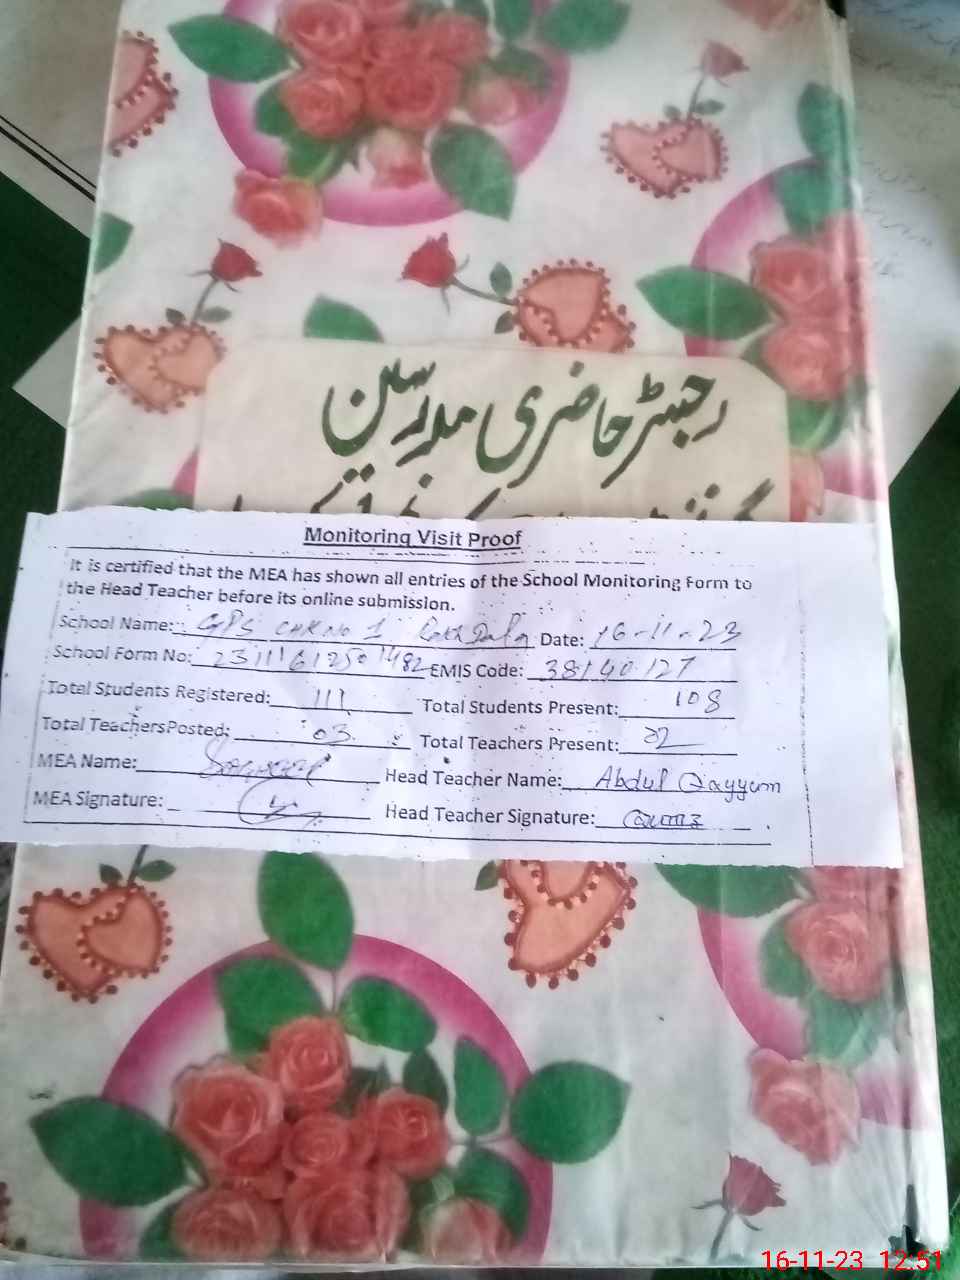 رجسٹر حاضری مدرسین
Monitoring Visit Proof
It is certified that the MEA has shown all entries of the School Monitoring Form to
the Head Teacher before its online submission.
School Name: GPS CHK No 1 Date: 16-11-23
School Form No: EMIS Code: 38140127
Total Students Registered: 111 Total Students Present: 108
Total Teachers Posted: 03 Total Teachers Present: 02
MEA Name: Head Teacher Name: Abdul Qayyum
MEA Signature: Head Teacher Signature:
16-11-23 12:51